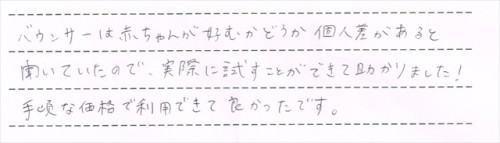 バウンサーは赤ちゃんが好むかどうか個人差があると
聞いていたので、実際に試すことができて助かりました!
手頃な価格で利用できて良かったです。